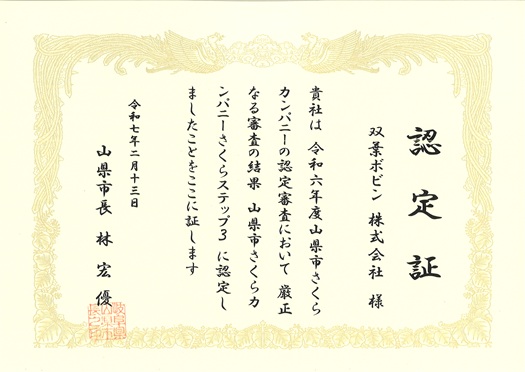 認定証
双葉ボビン 株式会社 様
貴社は 令和六年度山県市さくら
カンパニーの認定審査において 厳正
なる審査の結果 山県市さくらカ
ンパニーさくらステップ3 に認定し
ましたことをここに証します
令和七年二月十三日
山県市長 林 宏優